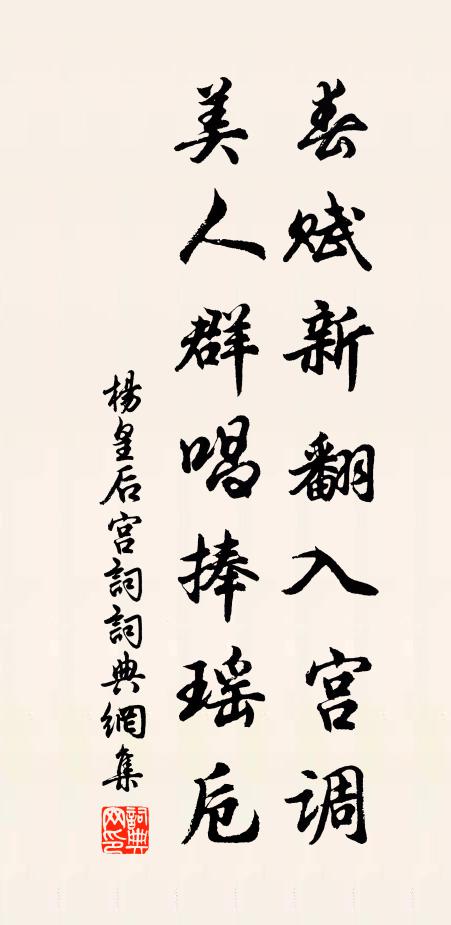 春赋新翻入宫调
美人群唱捧瑶卮
楊皇后宫詞詞典網集
詞典網印